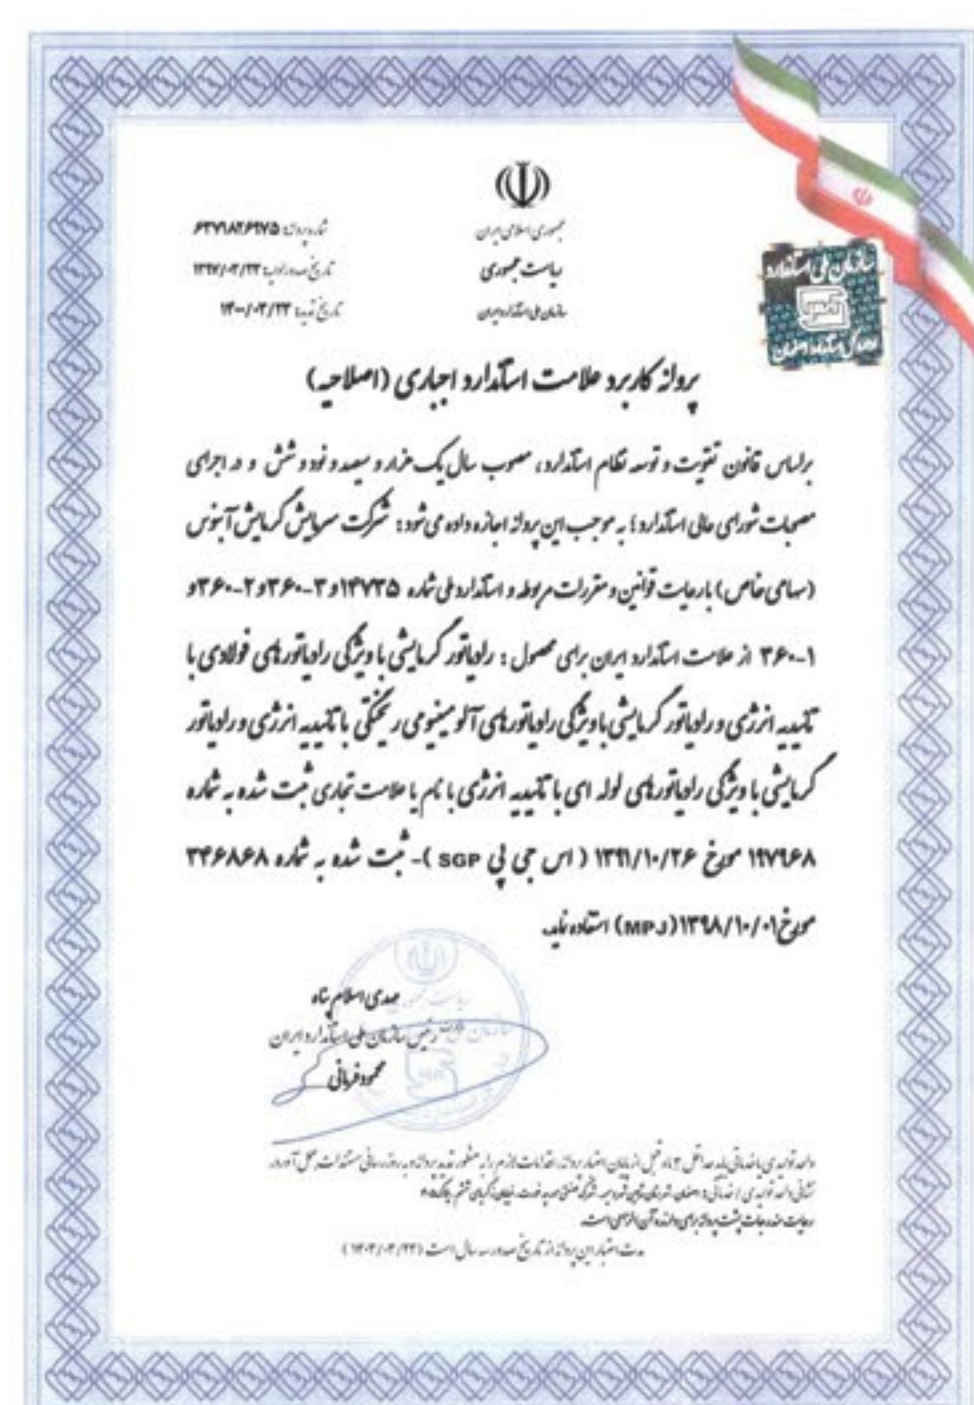 جمهوری اسلامی ایران
ریاست جمهوری
سازمان ملی استاندارد ایران
شماره پروانه: ۶۳۷۹۸۲۶۹۷۵
تاریخ صدور: ۱۳۹۷/۰۳/۲۳
تاریخ تمدید: ۱۴۰۰/۰۳/۲۳
سازمان ملی استاندارد
اداره کل استاندارد اصفهان
پروانه کاربرد علامت استاندارد اجباری (اصلاحیه)
براساس قانون تقویت و توسعه نظام استاندارد، مصوب سال یک هزار و سیصد و نود و شش و در اجرای
مصوبات شورای عالی استاندارد؛ به موجب این پروانه اجازه داده می شود: شرکت سرمایش گرمایش آبنوس
(سهامی خاص) با رعایت قوانین و مقررات مربوطه و استاندارد ملی شماره ۱۴۷۳۵و ۳-۳۶۰و ۲-۳۶۰و
۱-۳۶۰ از علامت استاندارد ایران برای محصول: رادیاتور گرمایشی با ویژگی رادیاتورهای فولادی با
تائیدیه انرژی و رادیاتور گرمایشی با ویژگی رادیاتورهای آلومینیومی ریختگی با تائیدیه انرژی و رادیاتور
گرمایشی با ویژگی رادیاتورهای لوله ای با تائیدیه انرژی با نام یا علامت تجاری ثبت شده به شماره
۱۹۷۹۶۸ مورخ ۱۳۹۱/۱۰/۲۶ ( اس جی پی SGP )- ثبت شده به شماره ۳۴۶۸۶۸
مورخ۱۳۹۸/۱۰/۰۱(MPJ) استفاده نماید.
مهدی اسلام پناه
رئیس سازمان ملی استاندارد ایران
محمود فرمانی
واحد تولیدی یا خدماتی باید حداقل ۳ ماه قبل از پایان اعتبار پروانه، اقدامات لازم را به منظور تمدید پروانه و به روزرسانی مستندات بعمل آورد.
نشانی واحد تولیدی / خدماتی: اصفهان، شهرستان
رعایت مندرجات پشت پروانه برای دارنده آن الزامی است.
مدت اعتبار این پروانه از تاریخ صدور سه سال است (۱۴۰۳/۰۳/۲۳)